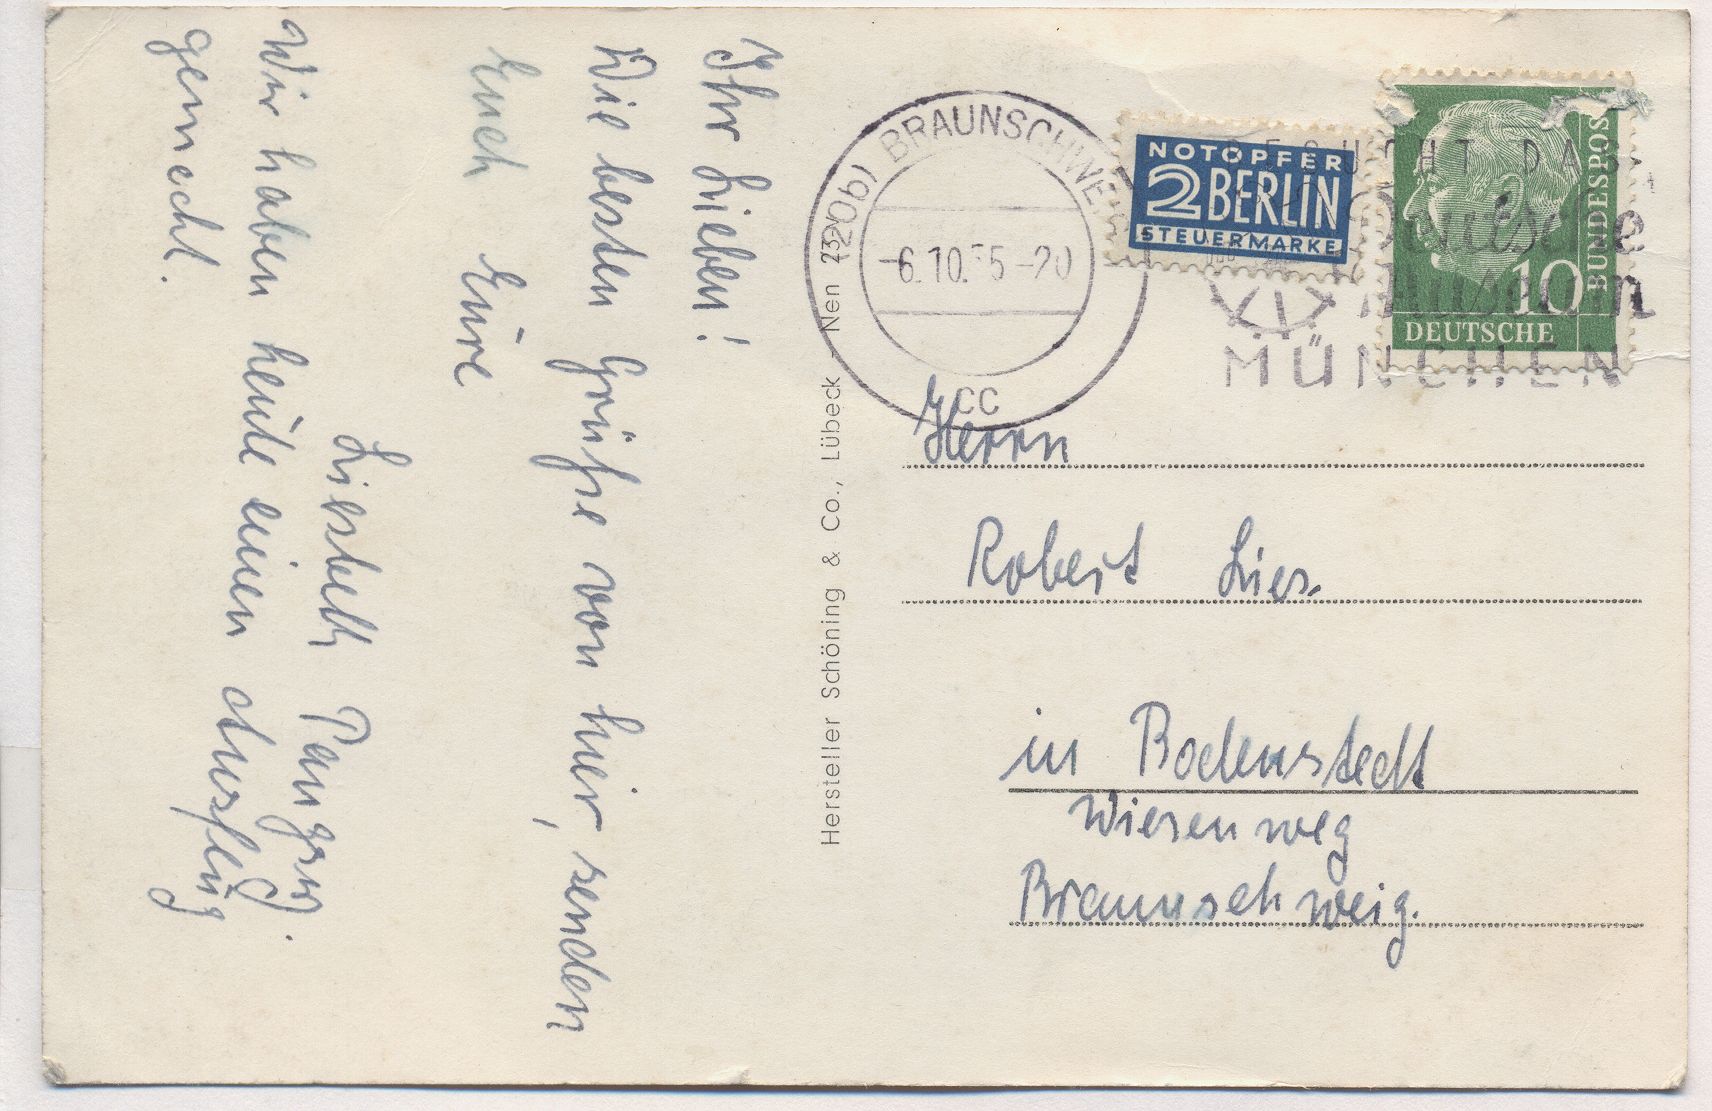 Ihr Lieben!
Die besten Grüße von hier, senden
Euch Eure
Liesbeth
Wir haben heute einen Ausflug
gemacht.
Hersteller Schöning & Co., Lübeck - Nen 23
(20b) BRAUNSCHWE
-6.10.55-20
cc
NOTOPFER
2 BERLIN
STEUERMARKE
BESUCHT DAS
Deutsche
Museum
MÜNCHEN
DEUTSCHE
BUNDESPOS
10
Herrn
Robert Lies.
in Bodenstedt
Wiesenweg
Braunschweig.